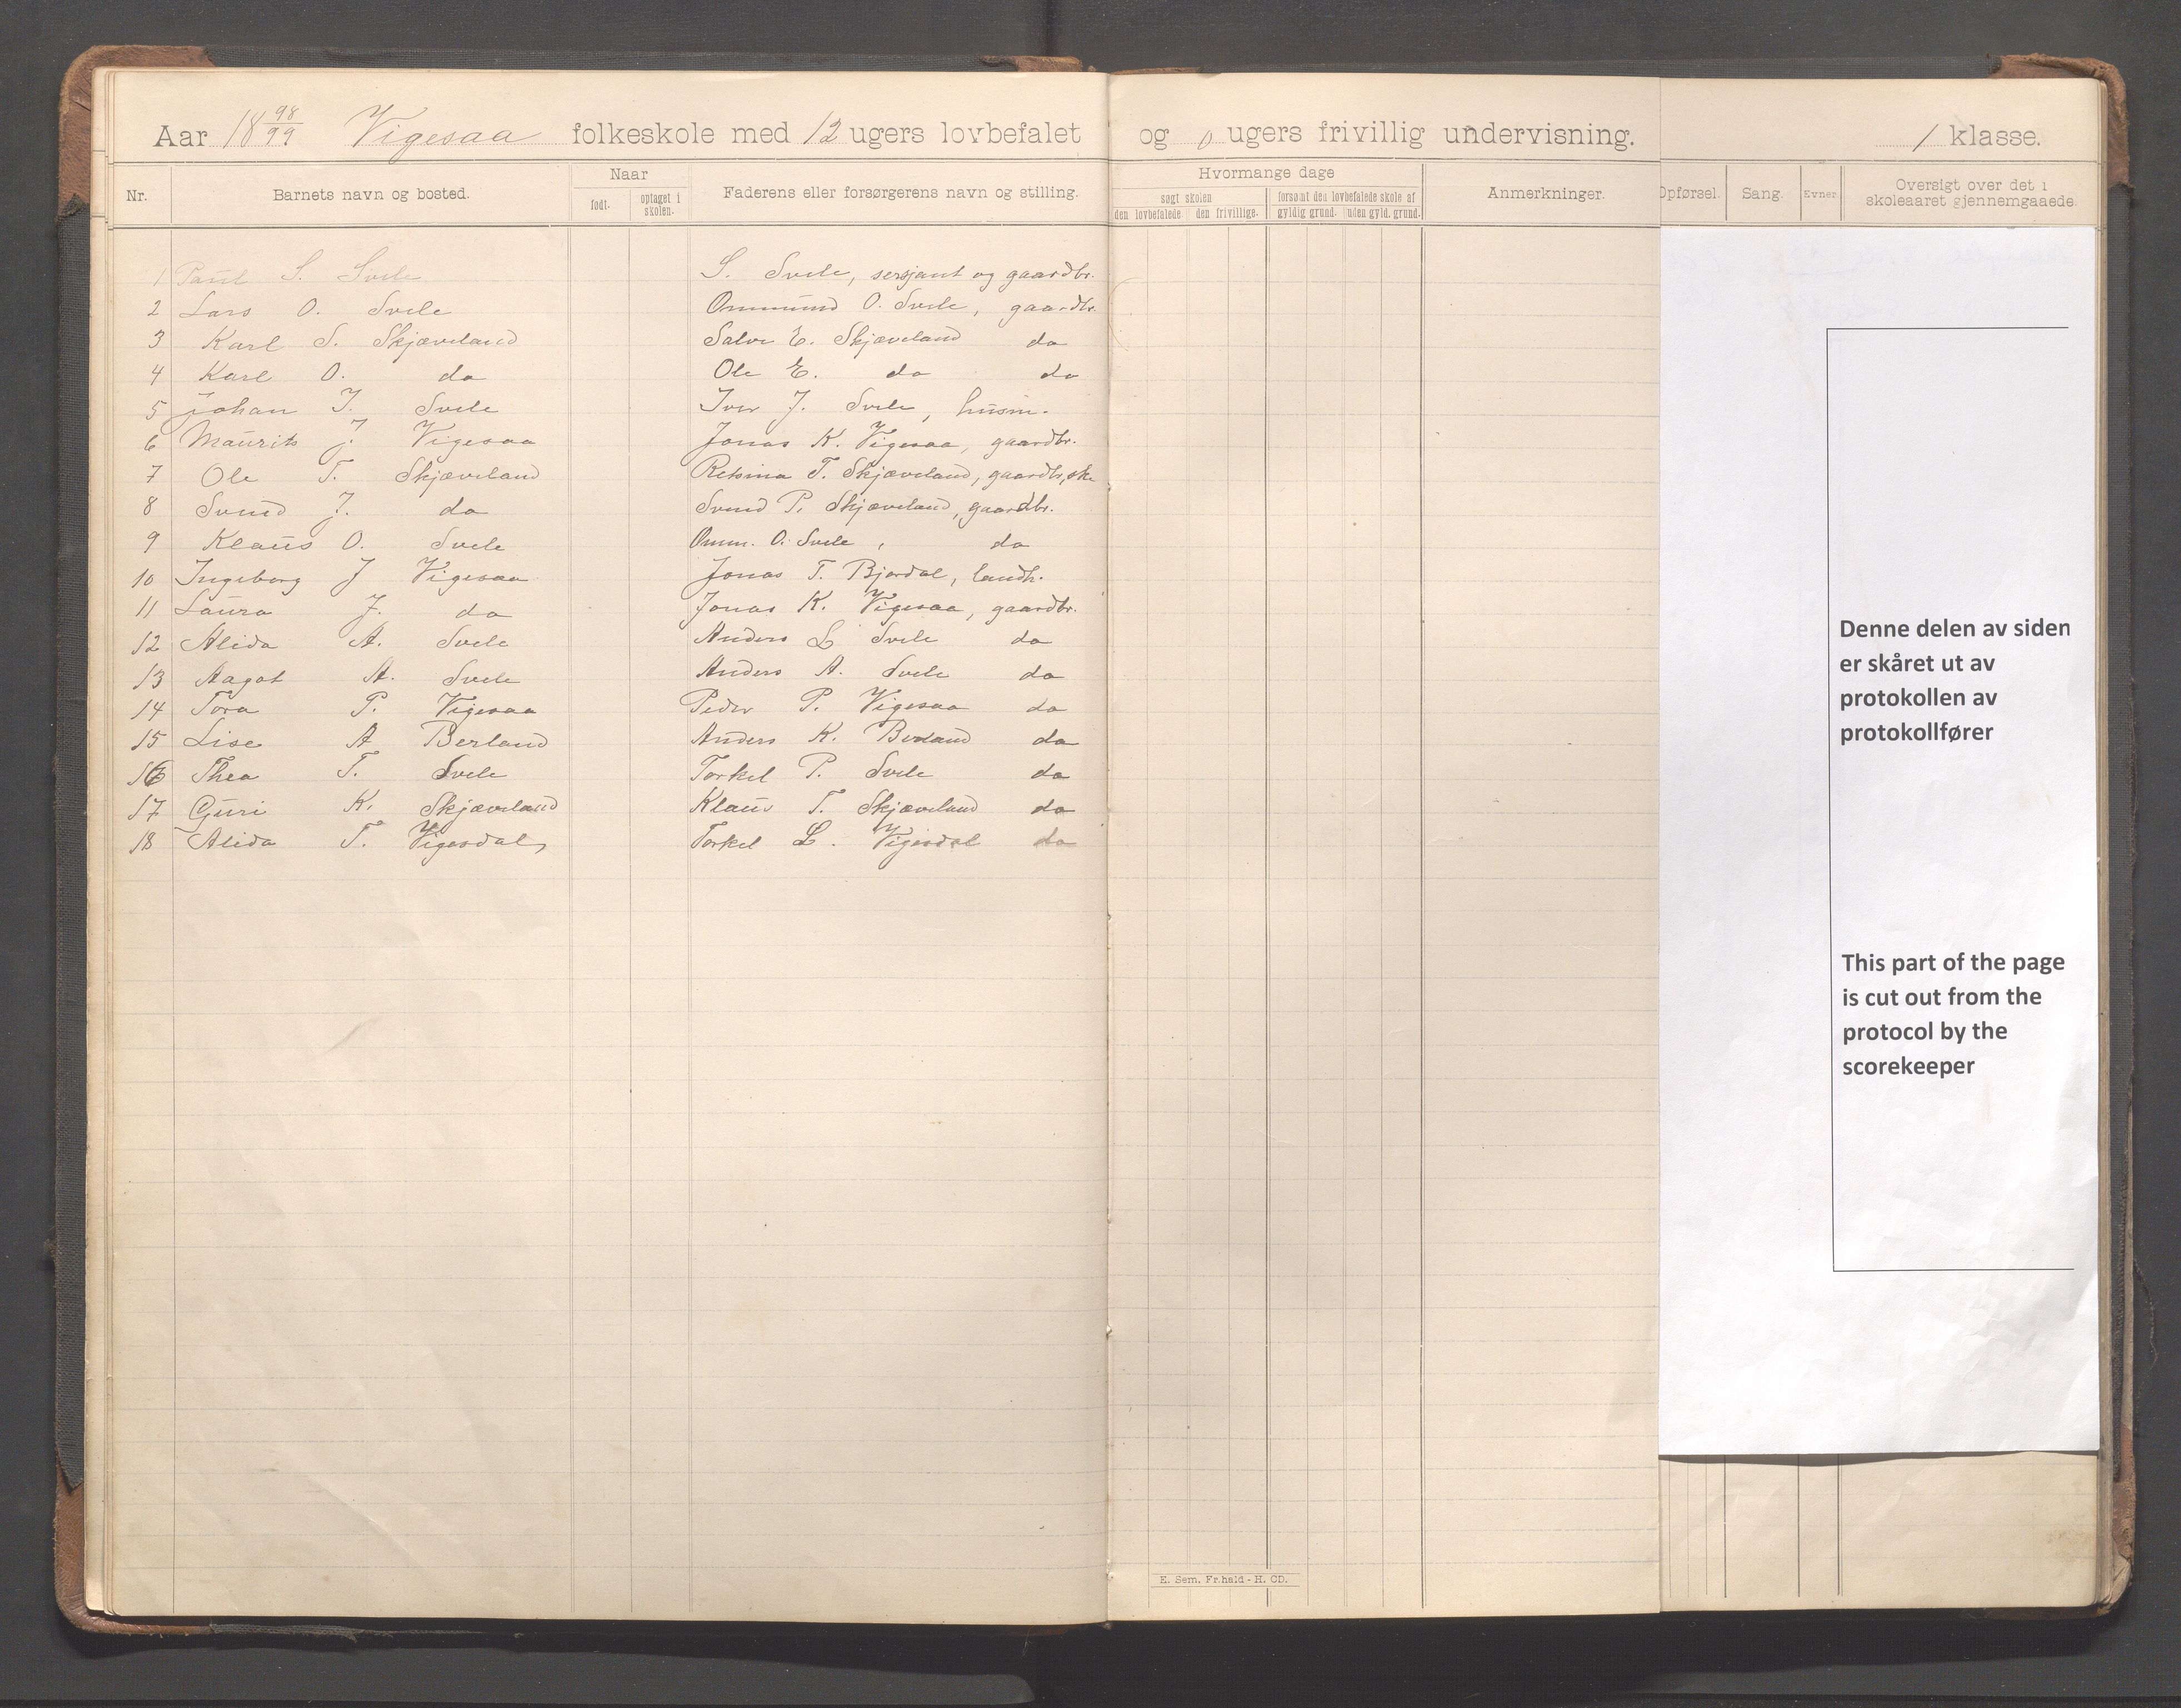 Aar 18 98/99 Vigesaa folkeskole med 12 ugers lovbefalet og 0 ugers frivillig undervisning. 1 klasse.
Nr. Barnets navn og bosted. Naar Faderens eller forsørgerens navn og stilling. Hvormange dage Anmerkninger. Opførsel. Sang. Evner Oversigt over det i skoleaaret gjennemgaaede.
født. optaget i skolen. søgt skolen forsømt den lovbefalede skole af
den lovbefalede den frivillige. gyldig grund. uden gyld. grund.
1 Paul S. Svele S. Svele, sersjant og gaardbr.
2 Lars O. Svele Ommund O. Svele, gaardbr.
3 Karl S. Skjæveland Salve E. Skjæveland do
4 Karl O. do Ole E. do do
5 Johan I. Svele Iver J. Svele, husm.
6 Maurits J. Vigesaa Jonas K. Vigesaa, gaardbr.
7 Ole T. Skjæveland Retsina T. Skjæveland, gaardbr,ske
8 Svend J. do Svend P. Skjæveland, gaardbr.
9 Klaus O. Svele Omm. O. Svele, do
10 Ingeborg J Vigesaa Jonas T. Bjordal, landh.
11 Laura J. do Jonas K. Vigesaa, gaardbr.
12 Alida A. Svele Anders L Svele do
13 Aagot A. Svele Anders A. Svele do
14 Tora P. Vigesaa Peder P. Vigesaa do
15 Lise A Berland Anders K. Berland do
16 Thea T. Svele Torkel P. Svele do
17 Guri K. Skjæveland Klaus T. Skjæveland do
18 Alida T. Vigesdal, Torkel L. Vigesdal do
Denne delen av siden
er skåret ut av
protokollen av
protokollfører
This part of the page
is cut out from the
protocol by the
scorekeeper
E. Sem, Fr.hald - H. CD.